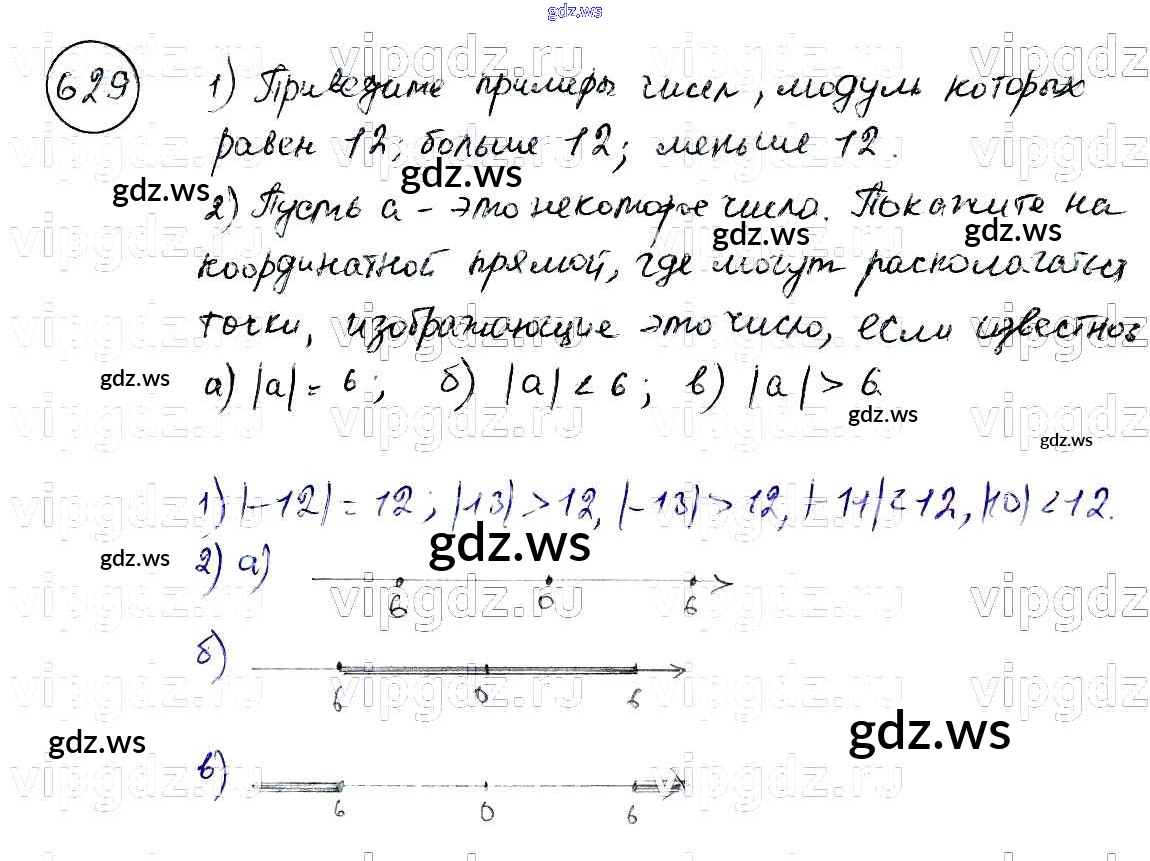 gdz.ws
629
1) Приведите примеры чисел, модуль которых
равен 12; больше 12; меньше 12.
gdz.ws gdz.ws
2) Пусть a – это некоторое число. Покажите на
gdz.ws gdz.ws
координатной прямой, где могут располагаться
точки, изображающие это число, если известно
gdz.ws а) |a| = 6; б) |a| < 6; в) |a| > 6.
gdz.ws
gdz.ws
1) |-12| = 12; |13| > 12, |-13| > 12, |-11| < 12, |10| < 12.
gdz.ws gdz.ws
2) а)
6 0 6
б)
6 0 6
gdz.ws gdz.ws
в)
6 0 6
vipgdz.ru vipgdz.ru vipgdz.ru vipgdz.ru